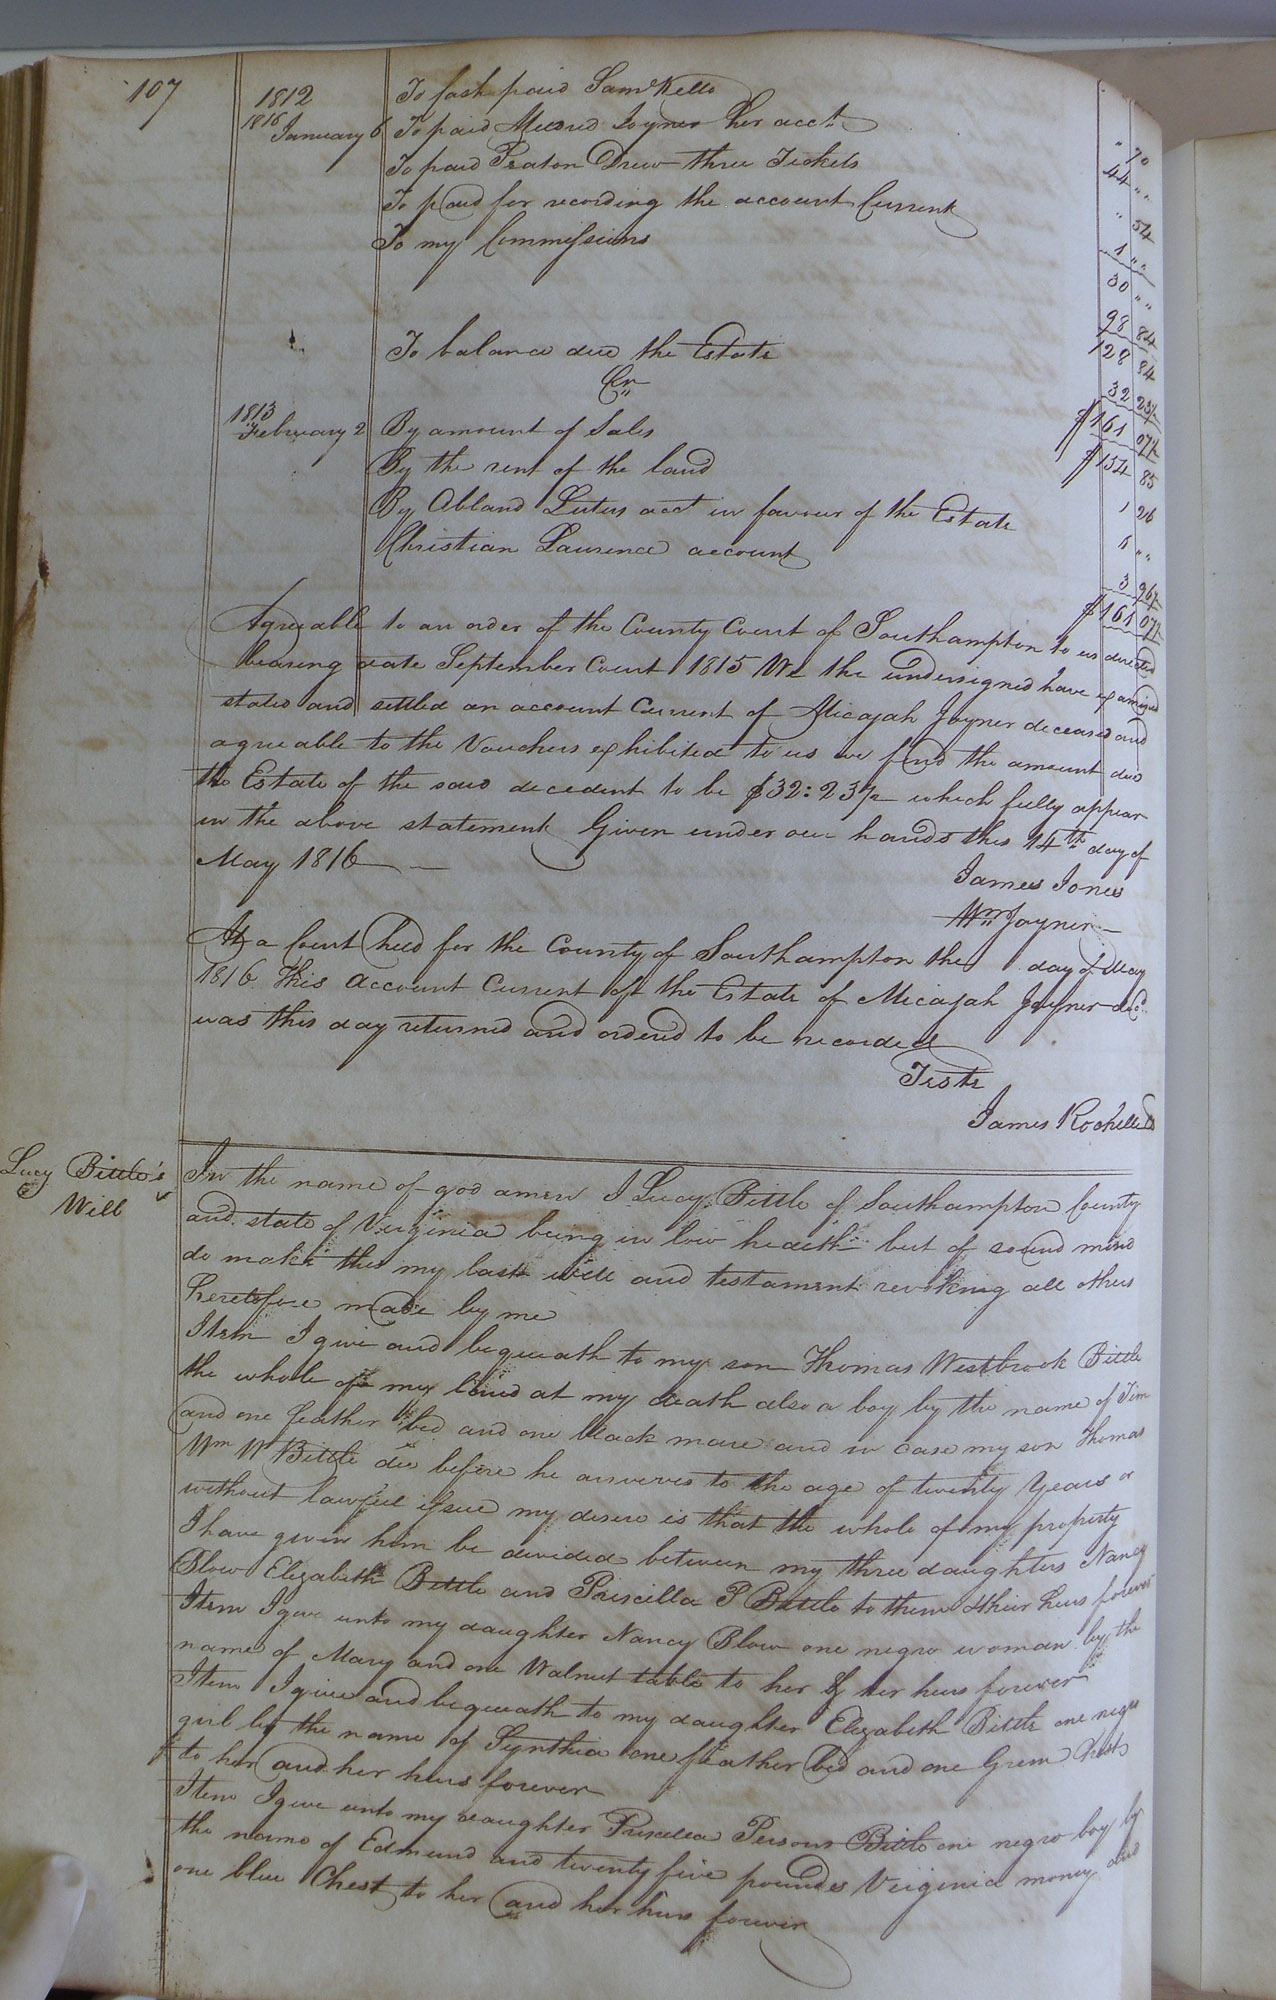 107
1812 To Cash paid Saml Kello " 70
1816 January 6 To paid Mildred Joyner her acct 44 " "
To paid Drew three Tickets " 54
To paid for recording the account Current 1 " "
To my Commissions 30 " "
98 84
128 84
To balance due the Estate 32 23½
$161 07½
Cr
1813
February 2 By amount of Sales $154 85
By the rent of the land 1 26
By acct in favour of the Estate 1 " "
Christian Laurence account 3 96½
$161 07½
Agreeable to an order of the County Court of Southampton to us directed
bearing date September Court 1815 We the undersigned have examined
stated and settled an account Current of Micajah Joyner deceased and
agreeable to the Vouchers exhibited to us we find the amount due
the Estate of the said decedent to be $32:23½ which fully appear
in the above statement Given under our hands this 14th day of
May 1816
James Jones
Wm Joyner
At a Court held for the County of Southampton the day of May
1816 This account Current of the Estate of Micajah Joyner decd
was this day returned and ordered to be recorded
Teste
James Rochelle
Lucy Bittle's
Will
In the name of god amen I Lucy Bittle of Southampton County
and state of Virginia being in low health but of sound mind
do make this my last will and testament revoking all others
heretofore made by me
Item I give and bequeath to my son Thomas Westbrook Bittle
the whole of my land at my death also a boy by the name of Tim
and one feather bed and one black mare and in case my son Thomas
Wm W Bittle die before he arrives to the age of twenty Years or
without lawful issue my desire is that the whole of my property
I have given him be devided between my three daughters Nancy
Blow Elizabeth Bittle and Priscilla P Bittle to them & their heirs forever
Item I give unto my daughter Nancy Blow one negro woman by the
name of Mary and one Walnut table to her & her heirs forever
Item I give and bequeath to my daughter Elizabeth Bittle one negro
girl by the name of Synthia one feather bed and one Green Chest
to her and her heirs forever
Item I give unto my daughter Priscilla Persons Bittle one negro boy by
the name of Edmund and twenty five pounds Virginia money and
one blue Chest to her and her heirs forever